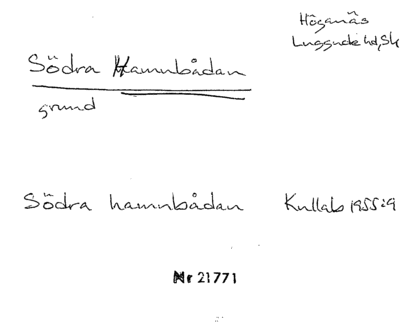 Höganäs
Luggude hd, Sk
Södra Hamnbådan
grund
Södra hamnbådan Kullab 1955:9
Nr 21771